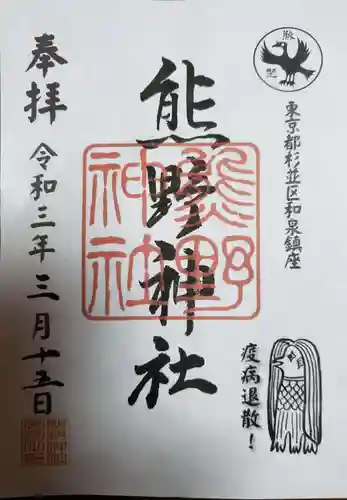 東京都杉並区和泉鎮座
熊野神社
熊野
神社
奉拝
令和三年三月十五日
疫病退散!